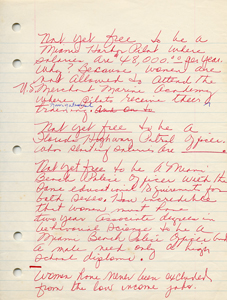 Not yet free to be a
Miami Harbor Pilot where
salaries are 48,000.00 per year.
Why? Because women are
not allowed to attend the
U.S. Merchant Marine Academy
where pilots receive their
training.
Not yet free to be a
Florida Highway Patrol Officer.
Not yet free to be a Miami
Beach Police Officer with the
same educational requirements for
both sexes. How incredible
that women must have
two year associate degrees in
to be a
Miami Beach Police Officer but
a male need only a high
school diploma.
Women have never been excluded
from the low income jobs.